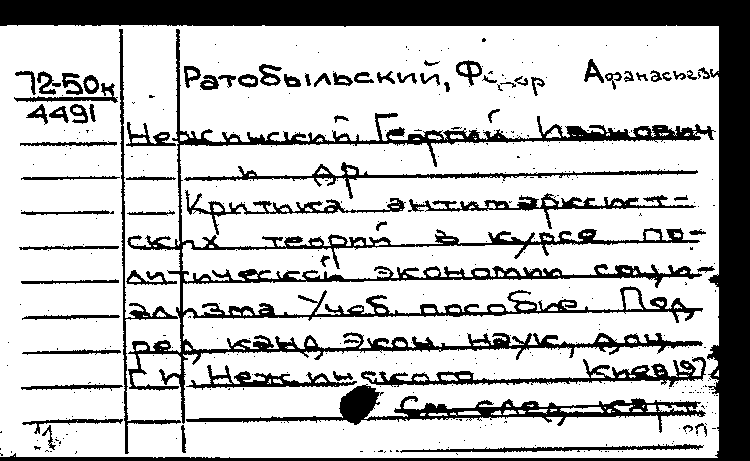 72-50к
4491
Ратобыльский, Федор Афанасьеви
Нежинский, Георгий Иванович
и др.
Критика антимарксист-
ских теорий в курсе по-
литической экономии соци-
ализма. Учеб. пособие. Под
ред. канд. экон. наук, доц.
Г.п. Нежинского. Киев, 1972
См. след. карт
11